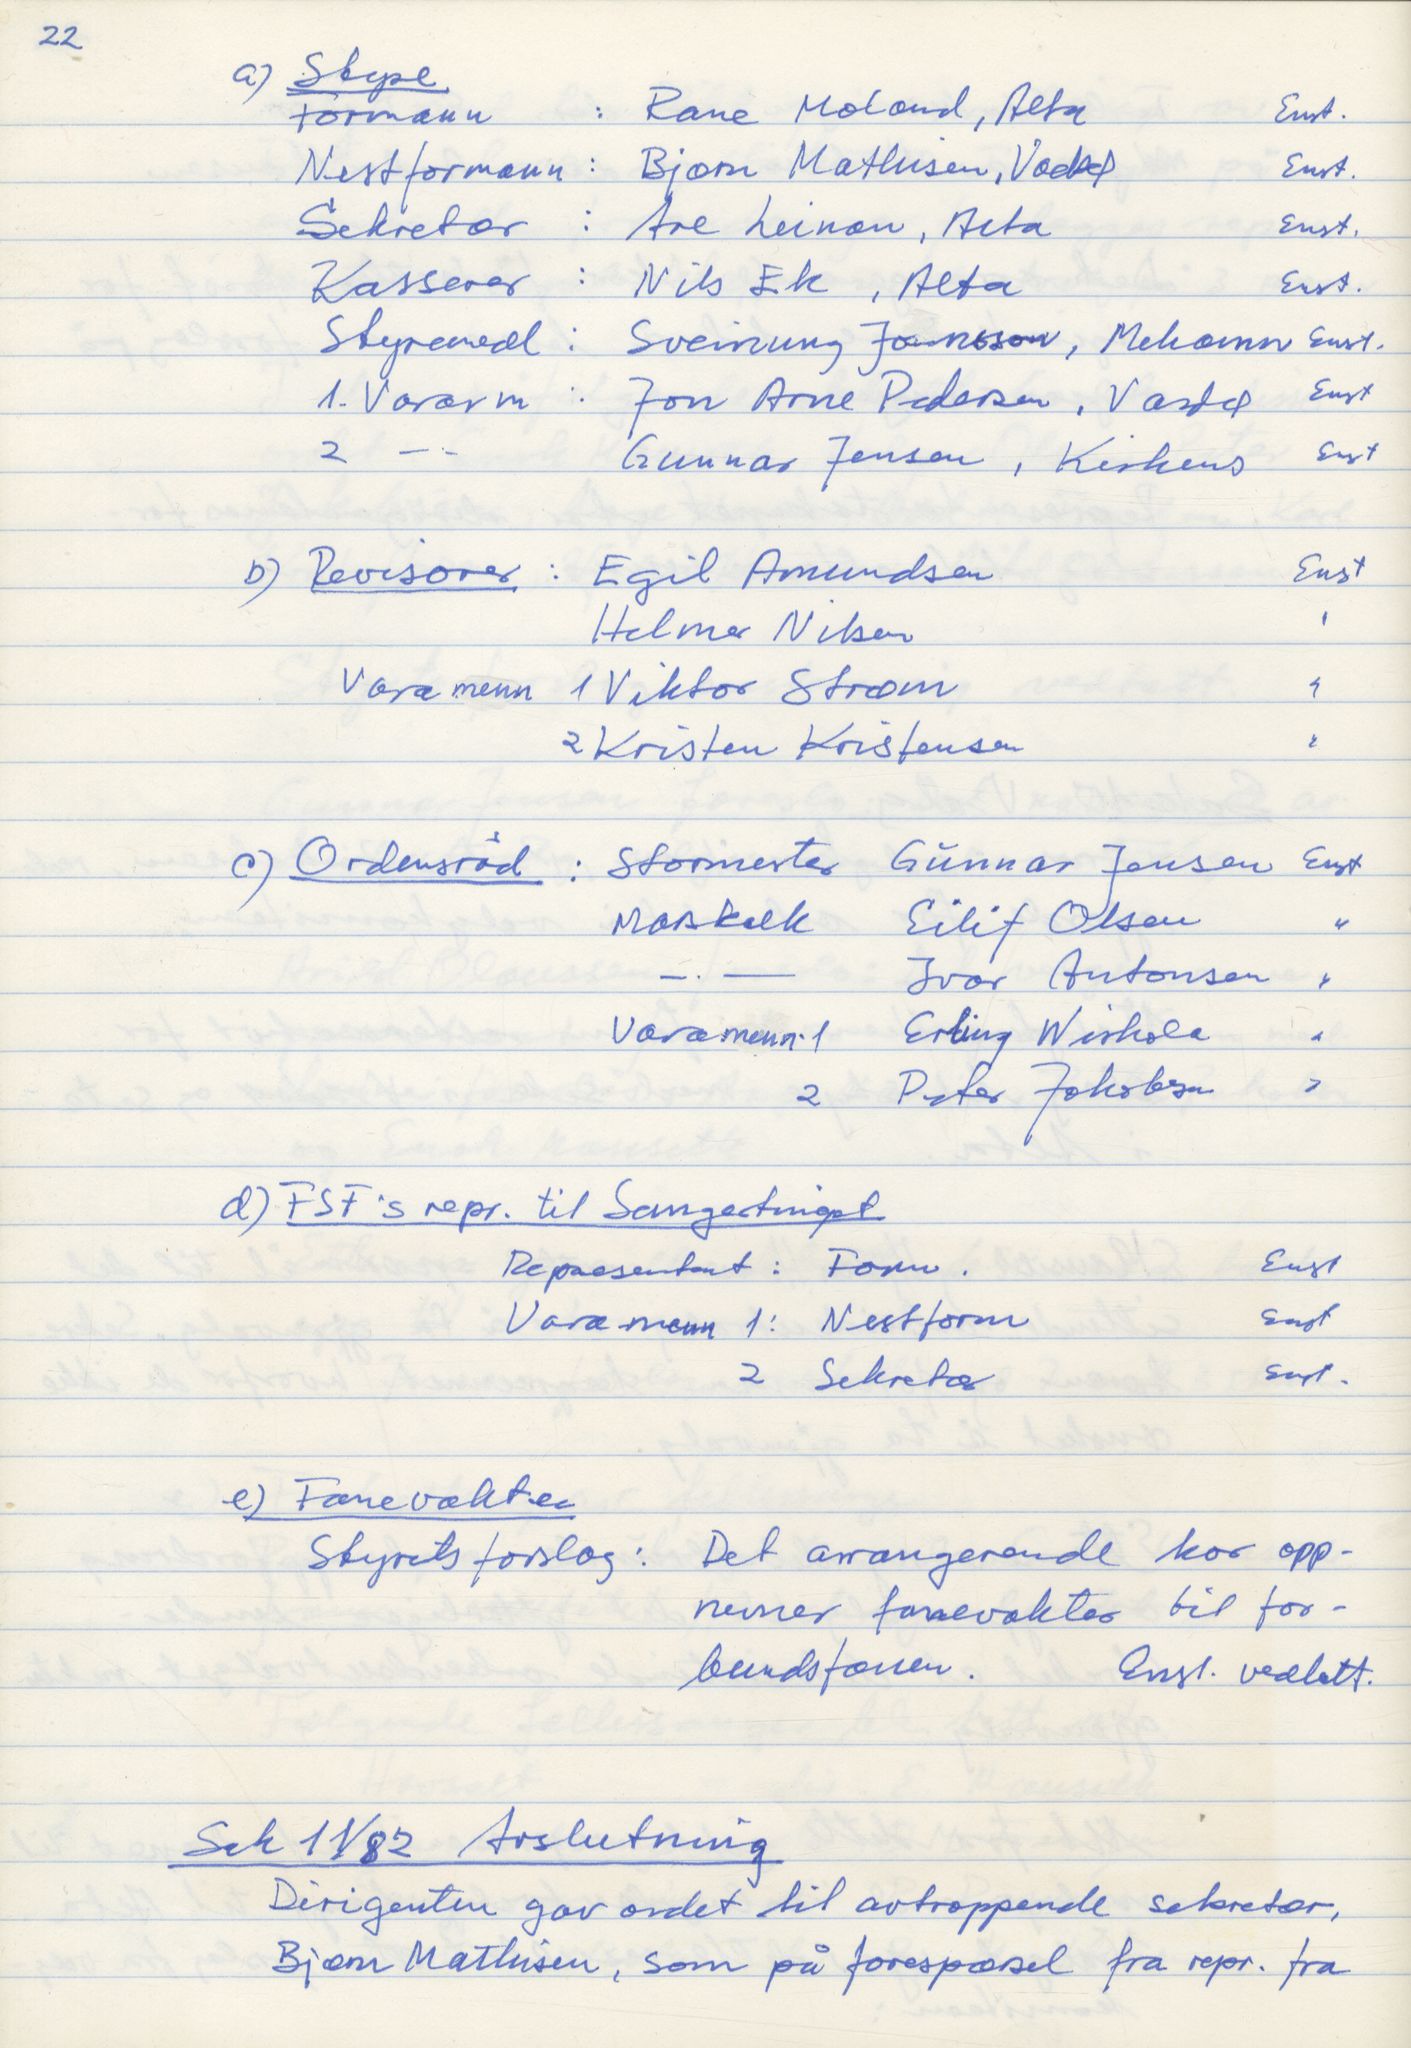 22
a) Styre
Formann : Rane Moland, Alta Enst.
Nestformann : Bjørn Mathisen, Vadsø Enst.
Sekretær : Are Leinan, Alta Enst.
Kasserer : Nils Ek, Alta Enst.
Styremedl : Sveinung Jonsson, Mehamn Enst.
1. Vararm : Jon Arne Pedersen, Vardø Enst
2 -·- Gunnar Jensen, Kirkenes Enst
b) Revisorer : Egil Amundsen Enst
Helmer Nilsen "
Varamenn 1 Viktor Strøm "
2 Kristen Kristensen "
c) Ordensråd : Stormester Gunnar Jensen Enst
Marskalk Eilif Olsen "
-·- Ivar Antonsen "
Varamenn 1 Erling Wirkola "
2 Peter Jakobsen "
d) FSF's repr. til Sangertinget
Representant : Form. Enst
Varamenn 1: Nestform Enst
2 Sekretær Enst.
e) Fanevakter
Styrets forslag : Det arrangerende kor opp-
nevner fanevakter til for-
bundsfanen. Enst. vedtatt.
Sak 11/82 Avslutning
Dirigenten gav ordet til avtroppende sekretær,
Bjørn Mathisen, som på forespørsel fra repr. fra